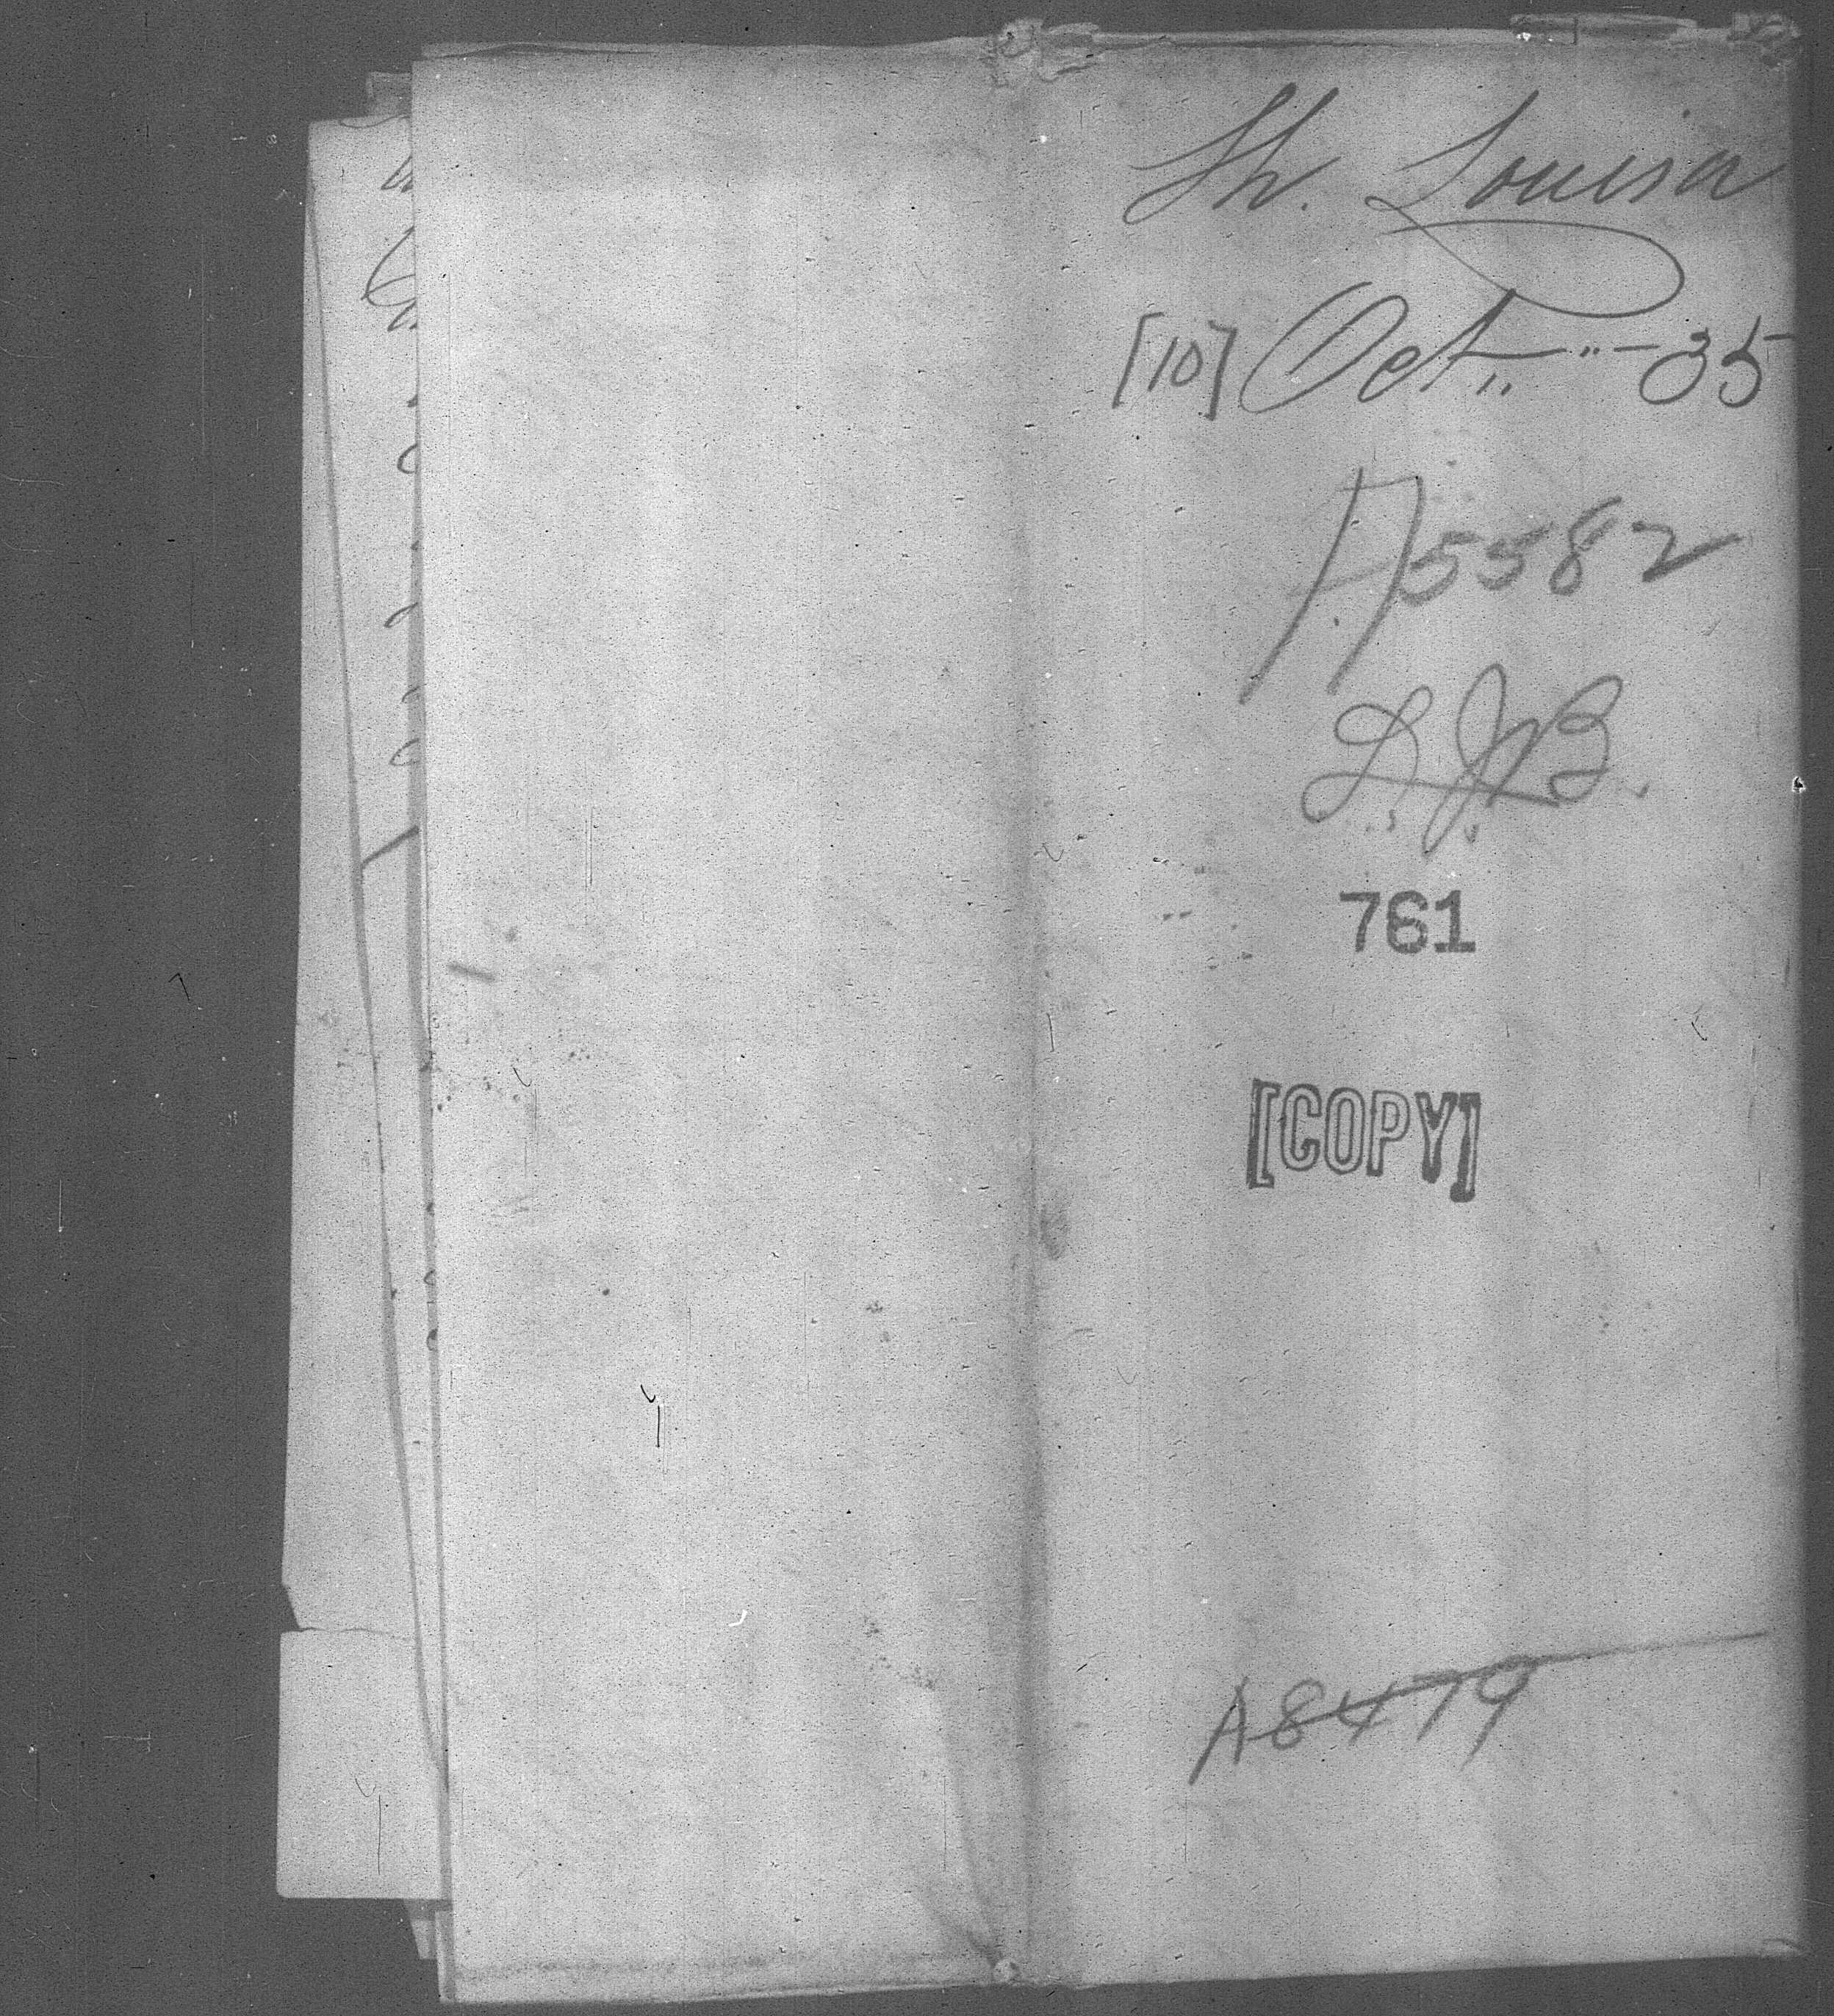 Sh. Louisa
[10] Oct. " - 35
A5582
L.J.B.
761
[COPY]
A8479